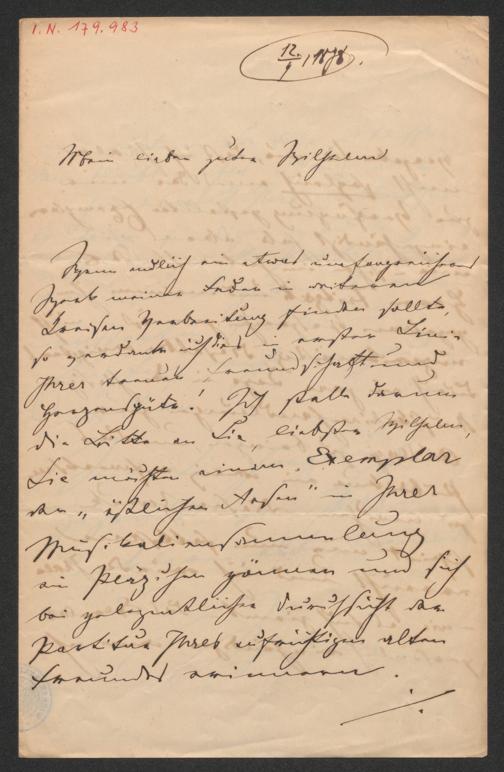 I. N. 179.983
12./9 1878.
Mein lieber guter Wilhelm
Wenn endlich ein etwas umfangreicheres
Werk meiner Feder in weiteren
Kreisen Verbreitung finden sollte,
so verdanke ich dies in erster Linie
Ihrer treuen Freundschaft und
Herzensgüte! Ich stelle darum
die Bitte an Sie, liebster Wilhelm,
Sie möchten einem Exemplar
der „östlichen Rosen" in Ihrer
Musikaliensammlung
ein Plätzchen gönnen und sich
bei gelegentlicher Durchsicht der
Partitur Ihres aufrichtigen alten
Freundes erinnern.
./.